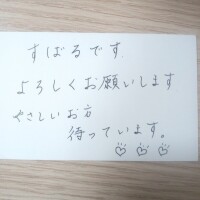 すばるです
よろしくお願いします
やさしいお方
待っています。
♡ ♡ ♡